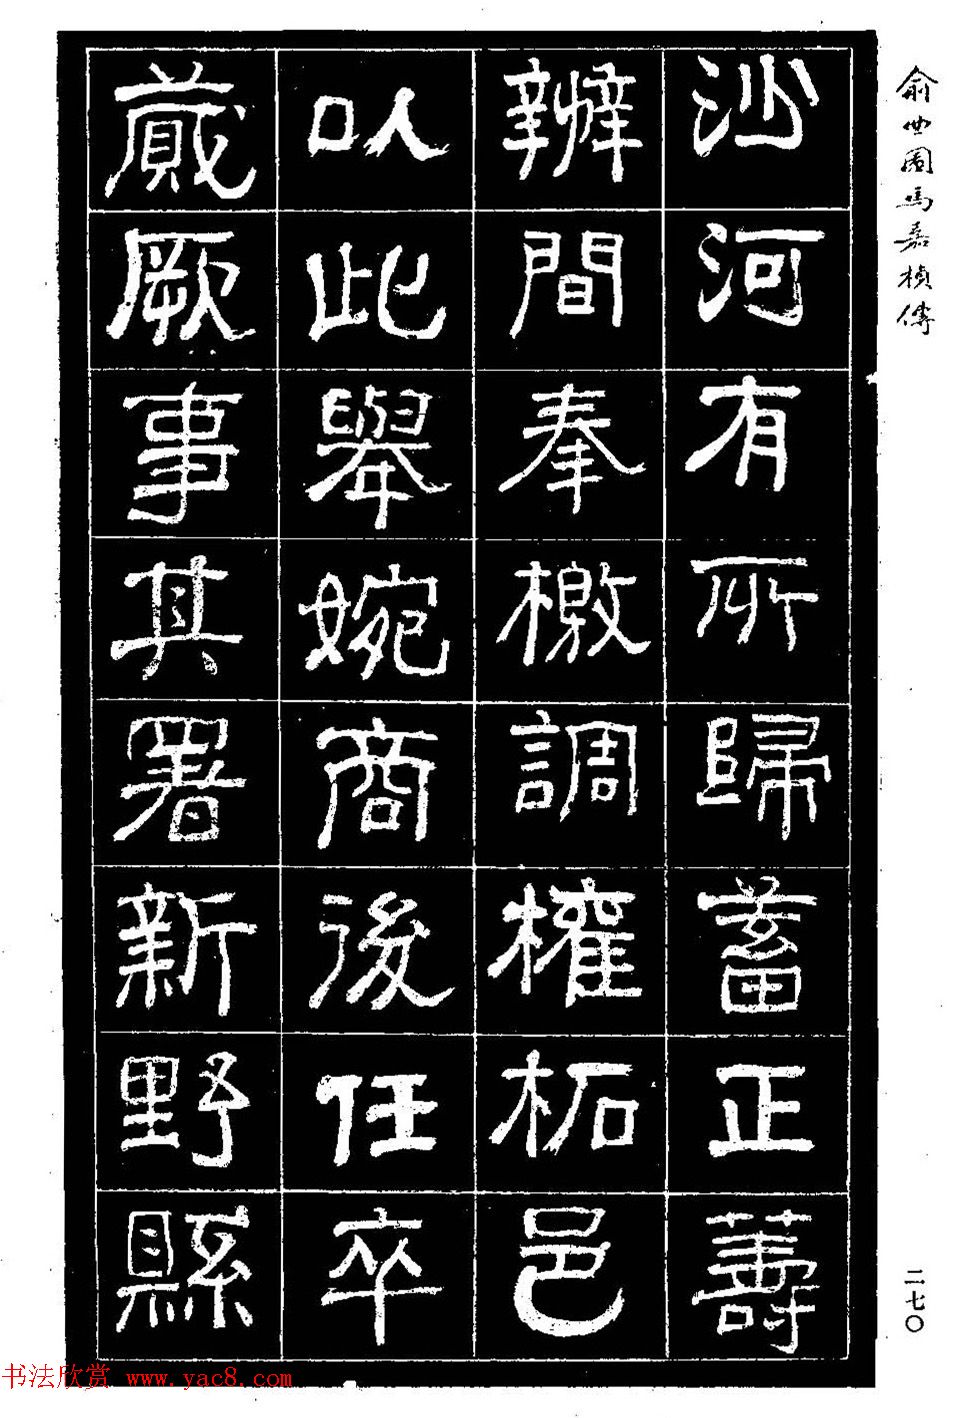 俞世圃馬嘉楨傳
沙河有所歸蓄正薵
辦間奉檄調權柘邑
以此舉婉商後任卒
蕆厥事其署新野縣
二七〇
书法欣赏 www.yac8.com